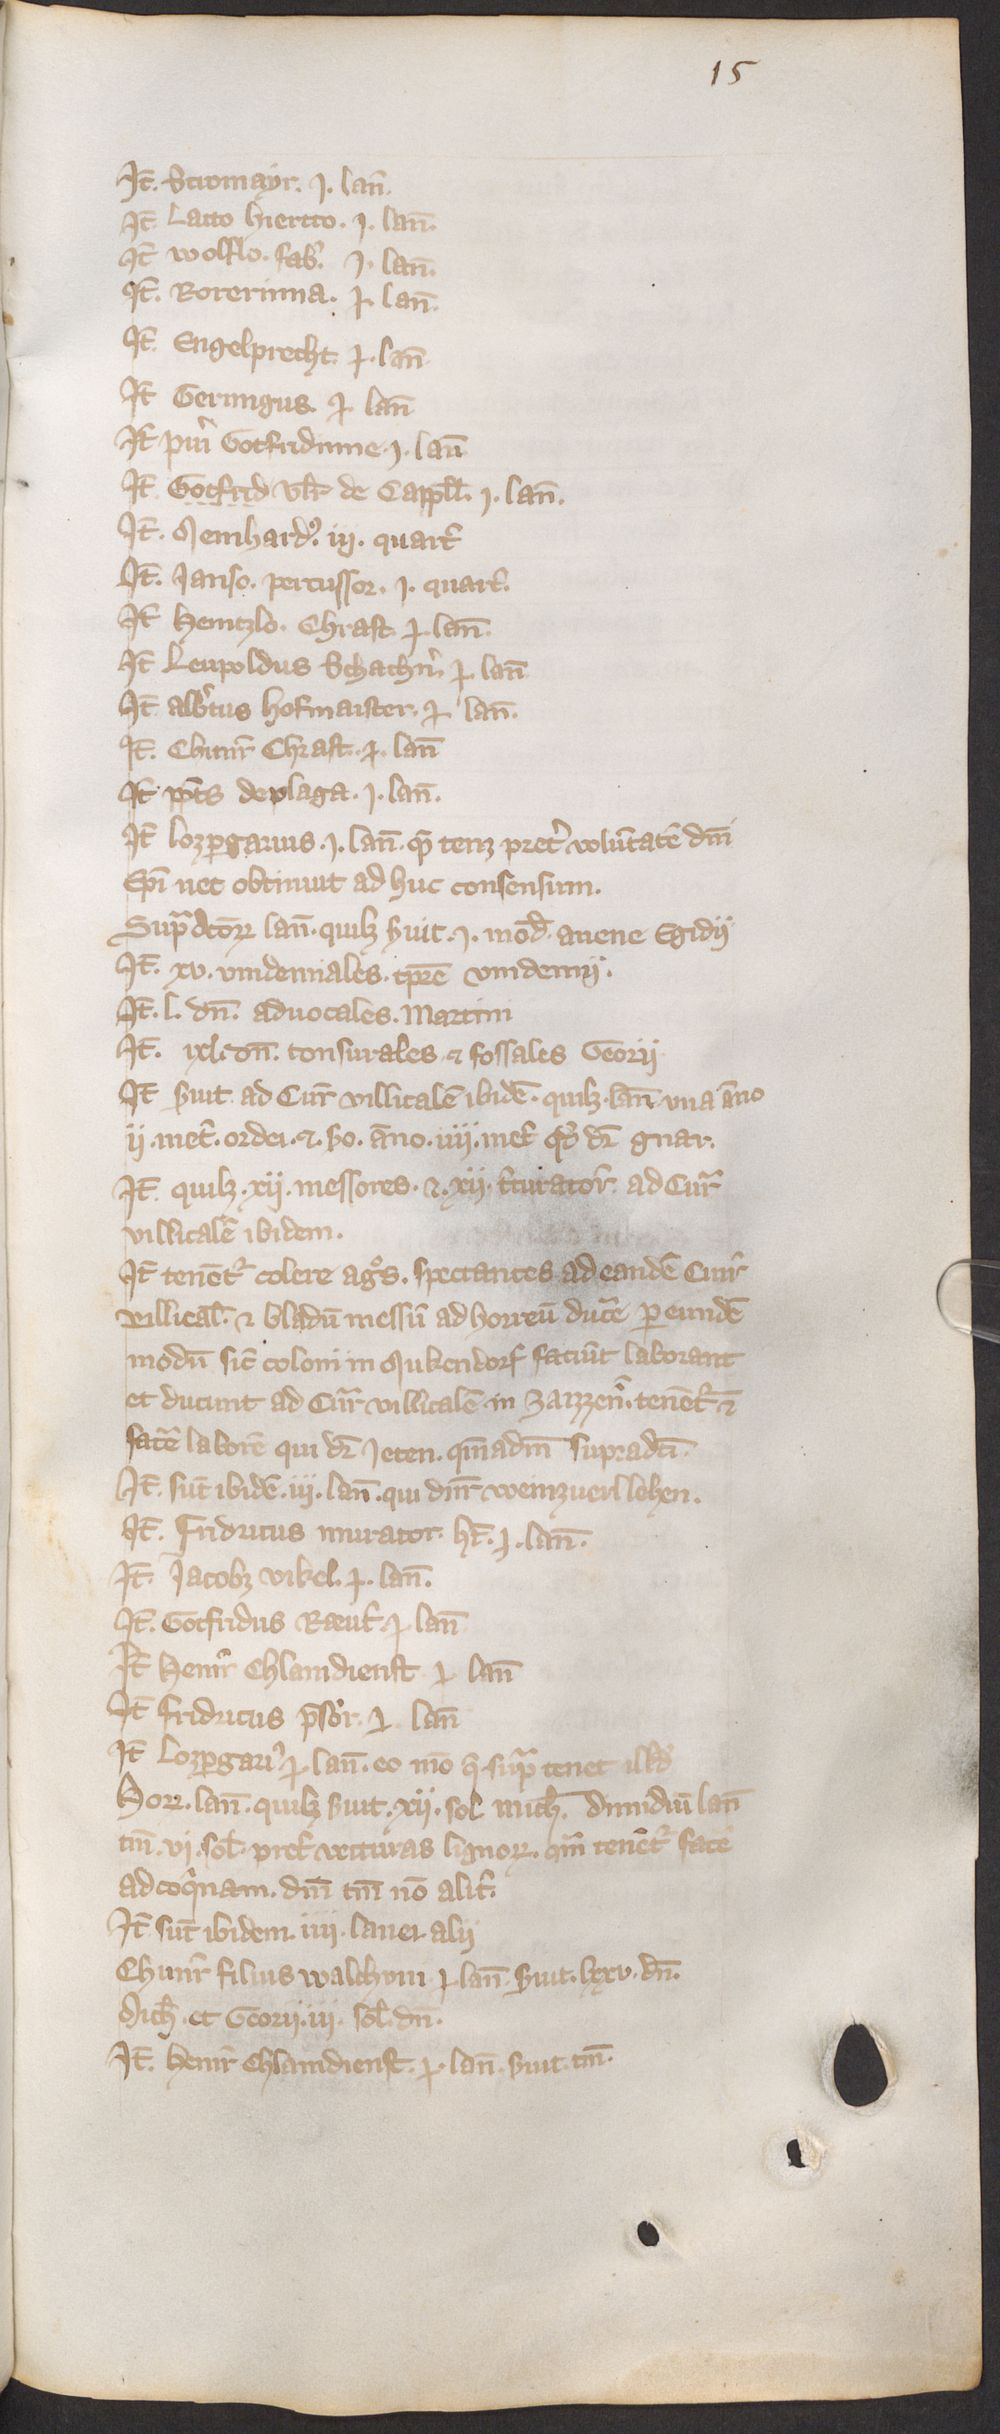 15
It̄. Stromayr. j. lan̄.
It̄ Latto hiertto. j. lan̄.
It̄ wolflo. fab̕. j. lan̄.
It̄. Rorerinna. ɉ. lan̄.
It̄. Engelprecht. ɉ. lan̄
It̄ Geringus. ɉ. lan̄
It̄ pu̕i Gotfridinne. j. lan̄
It̄. Gotfrid vlr̄ de Cappll̄. j. lan̄.
It̄. Meinhardꝰ. iij. quart̕
It̄. Janso. percussor. j. quart̕.
It̄ Heintzlo. Chraft. ɉ. lan̄.
It̄ Leupoldus Schachn̕. ɉ. lan̄
It̄ alb̕tus hofmaister. ɉ lan̄.
It̄. Chunr̄ Chraft. ɉ. lan̄
It̄ pb̄ts de plaga. j. lan̄.
It̄ lozpgarius. j. lan̄. qē tenꝫ pret̕ volūtatē dn̄i
Ep̄i nec obtinuit ad huc consensum.
Supᵃdcōꝝ lan̄. quilꝫ ẜuit. j. mod̄. auene Egidij
It̄. xv. vindemiales. tp̄re vindemij.
It̄. l. dn̄. aduocales. Martini
It̄. ixl. dn̄. tonsurales ⁊ fossales Georij
It̄ ẜuit ad Cur̄ villicalē ibidē. quilꝫ. lan̄ vna āno
ij. met̕. ordei. ⁊. so. āno. iiij. met̕ qd̕ dr̄ gnar.
It̄ quilꝫ. xij. messores. ⁊. xij. t̕turator̄ ad Cur̄
villicalē ibidem.
It̄ tenēt̕ colere agᵒs. spectantes ad eandē Cur̄
villical̄. ⁊ bladū messiū ad horreū duc̕e ꝑ eundē
modū sic̄ coloni in Mukendorf faciūt laborant
et ducunt ad Cur̄ villicalē in Zaizzen̕. tenēt̕ ⁊
fac̕e laborē qui dr̄ Jeten. qm̄admˉ supradc̄i.
It̄. sūt ibidē. iij. lan̄. qui dn̄r weinzuerl lehen.
It̄. Fridricus murator. ht̄. j. lan̄.
It̄. Jacobꝫ vikel. ɉ. lan̄.
It̄. Gotfridus Raut̕. ɉ lan̄
It̄ Heinr̄ Chlamdienst ɉ lan̄
It̄ fridricus p̄sor. ɉ. lan̄
It̄ Lozpgariꝰ ɉ. lan̄. eo mō q̄ supᵃ tenet illd̕
Horꝝ. lan̄. quilꝫ ẜuit. xij. sol mich̄. dimidiū lan̄
tm̄. vj. sol̄. pret̕ vecturas lignoꝝ. qm̄ tenēt̕ fac̕e
ad coqⁱnam. dn̄i tm̄ nō alit̕.
It̄ sūt ibidem. iiij. lanei alij
Chunr̄ filius walchuni ɉ lan̄ ẜuit. lxxv. dn̄.
Mich̄. et Georij. iij. sol̄. dn̄.
It̄. Heinr̄ Chlamdienst. ɉ. lan̄. ẜuit. tm̄.